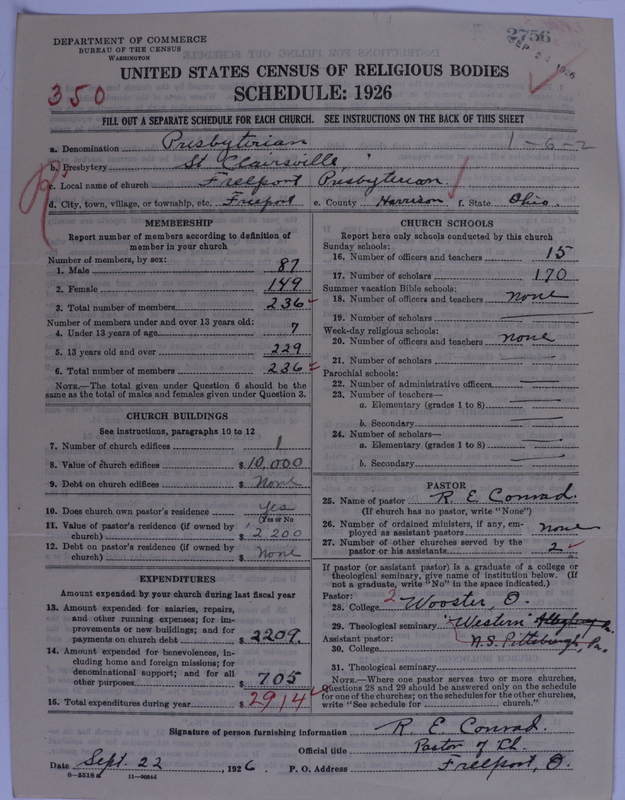 DEPARTMENT OF COMMERCE
BUREAU OF THE CENSUS
WASHINGTON
2756
SEP 24 1926
UNITED STATES CENSUS OF RELIGIOUS BODIES
350
SCHEDULE: 1926
FILL OUT A SEPARATE SCHEDULE FOR EACH CHURCH. SEE INSTRUCTIONS ON THE BACK OF THIS SHEET
a. Denomination Presbyterian 1-6-2
b. Presbytery St Clairsville,
c. Local name of church Freeport Presbyterian
d. City, town, village, or township, etc. Freeport e. County Harrison f. State Ohio
MEMBERSHIP
Report number of members according to definition of
member in your church
Number of members, by sex:
1. Male 87
2. Female 149
3. Total number of members 236
Number of members under and over 13 years old:
4. Under 13 years of age 7
5. 13 years old and over 229
6. Total number of members 236
NOTE.—The total given under Question 6 should be the
same as the total of males and females given under Question 3.
CHURCH BUILDINGS
See instructions, paragraphs 10 to 12
7. Number of church edifices 1
8. Value of church edifices $10,000
9. Debt on church edifices $ None
10. Does church own pastor's residence yes
(Yes or No
11. Value of pastor's residence (if owned by
church) $2200
12. Debt on pastor's residence (if owned by
church) $ None
EXPENDITURES
Amount expended by your church during last fiscal year
13. Amount expended for salaries, repairs,
and other running expenses; for im-
provements or new buildings; and for
payments on church debt $2209.
14. Amount expended for benevolences, in-
cluding home and foreign missions; for
denominational support; and for all
other purposes $705
15. Total expenditures during year $2914
CHURCH SCHOOLS
Report here only schools conducted by this church
Sunday schools:
16. Number of officers and teachers 15
17. Number of scholars 170
Summer vacation Bible schools:
18. Number of officers and teachers none
19. Number of scholars
Week-day religious schools:
20. Number of officers and teachers none
21. Number of scholars
Parochial schools:
22. Number of administrative officers
23. Number of teachers—
a. Elementary (grades 1 to 8)
b. Secondary
24. Number of scholars—
a. Elementary (grades 1 to 8)
b. Secondary
PASTOR
25. Name of pastor R. E. Conrad.
(If church has no pastor, write "None")
26. Number of ordained ministers, if any, em-
ployed as assistant pastors none
27. Number of other churches served by the
pastor or his assistants 2
If pastor (or assistant pastor) is a graduate of a college or
theological seminary, give name of institution below. (If
not a graduate, write "No" in the space indicated.)
Pastor:
28. College 2 Wooster, O.
29. Theological seminary Western
Assistant pastor: N.S. Pittsburgh, Pa.
30. College
31. Theological seminary
NOTE.—Where one pastor serves two or more churches,
Questions 28 and 29 should be answered only on the schedule
for one of the churches; on the schedules for the other churches,
write "See schedule for church."
Signature of person furnishing information R. E. Conrad.
Official title Pastor of Ch.
Date Sept. 22, 1926. P. O. Address Freeport, O.
8-5318 a 11-9034d